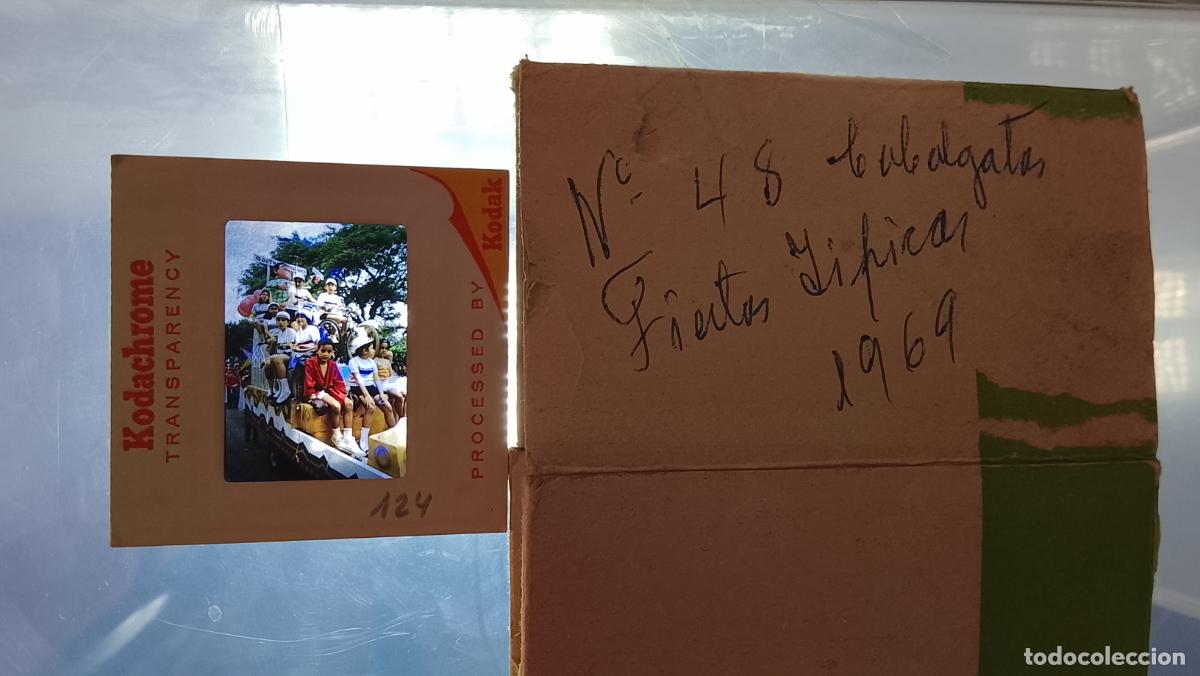 Kodachrome
TRANSPARENCY
PROCESSED BY
Kodak
124
Nº 48 Cabalgatas
Fiestas Típicas
1969
todocoleccion